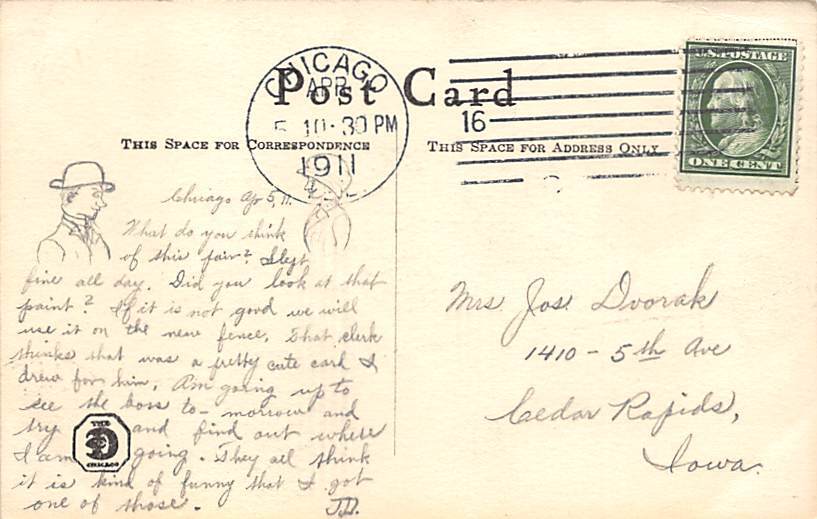 Post Card
CHICAGO
APR
5 10:30 PM
1911
ILL.
16
U.S. POSTAGE
ONE CENT
THIS SPACE FOR CORRESPONDENCE
THIS SPACE FOR ADDRESS ONLY
Chicago Apr 5, 11.
What do you think
of this pair? Slept
fine all day. Did you look at that
paint? If it is not good we will
use it on the new fence. That clerk
thinks that was a pretty cute card I
drew for him. Am going up to
see the boss to-morrow and
try and find out where
I am going. They all think
it is kind of funny that I got
one of those.
J.D.
THE
D
CHICAGO
Mrs. Jos. Dvorak
1410 - 5th Ave
Cedar Rapids,
Iowa.